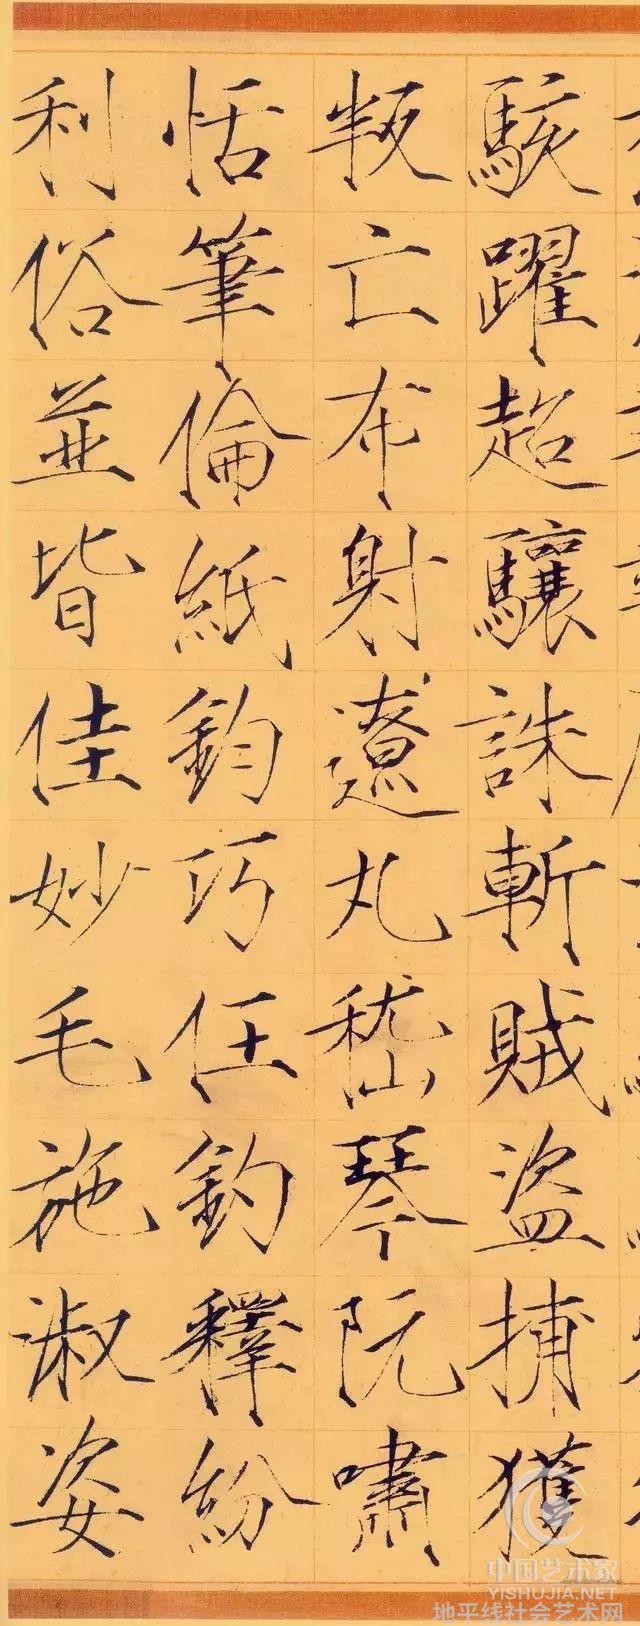 駭躍超驤誅斬賊盜捕獲
叛亡布射遼丸嵇琴阮嘯
恬筆倫紙鈞巧任釣釋紛
利俗並皆佳妙毛施淑姿
中国艺术家
YISHUJIA.NET
地平线社会艺术网